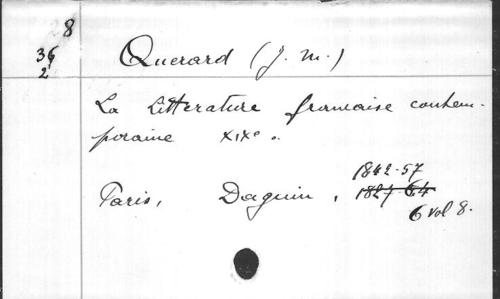 8
36
2
Querard (J. M.)
La Litterature francaise contem-
poraine XIXe.
1842-57
Paris, Daguin, 1827-64
6 vol 8.